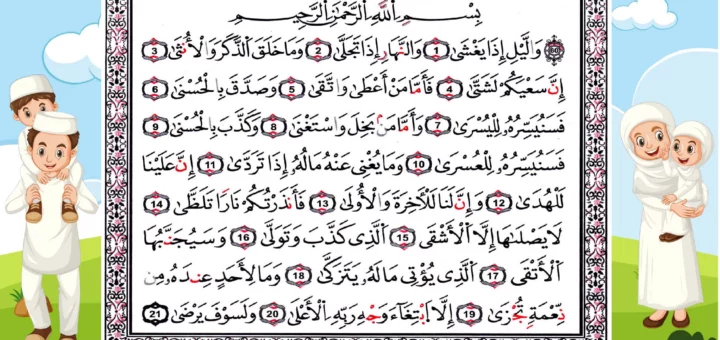 بِسْمِ اللَّهِ الرَّحْمَٰنِ الرَّحِيمِ
وَالَّيْلِ إِذَا يَغْشَىٰ 1 وَالنَّهَارِ إِذَا تَجَلَّىٰ 2 وَمَا خَلَقَ الذَّكَرَ وَالْأُنثَىٰ 3
إِنَّ سَعْيَكُمْ لَشَتَّىٰ 4 فَأَمَّا مَنْ أَعْطَىٰ وَاتَّقَىٰ 5 وَصَدَّقَ بِالْحُسْنَىٰ 6
فَسَنُيَسِّرُهُ لِلْيُسْرَىٰ 7 وَأَمَّا مَنْ بَخِلَ وَاسْتَغْنَىٰ 8 وَكَذَّبَ بِالْحُسْنَىٰ 9
فَسَنُيَسِّرُهُ لِلْعُسْرَىٰ 10 وَمَا يُغْنِي عَنْهُ مَالُهُ إِذَا تَرَدَّىٰ 11 إِنَّ عَلَيْنَا
لَلْهُدَىٰ 12 وَإِنَّ لَنَا لَلْآخِرَةَ وَالْأُولَىٰ 13 فَأَنذَرْتُكُمْ نَارًا تَلَظَّىٰ 14
لَا يَصْلَىٰهَا إِلَّا الْأَشْقَى 15 الَّذِي كَذَّبَ وَتَوَلَّىٰ 16 وَسَيُجَنَّبُهَا
الْأَتْقَى 17 الَّذِي يُؤْتِي مَالَهُ يَتَزَكَّىٰ 18 وَمَا لِأَحَدٍ عِندَهُ مِن
نِّعْمَةٍ تُجْزَىٰ 19 إِلَّا ابْتِغَاءَ وَجْهِ رَبِّهِ الْأَعْلَىٰ 20 وَلَسَوْفَ يَرْضَىٰ 21